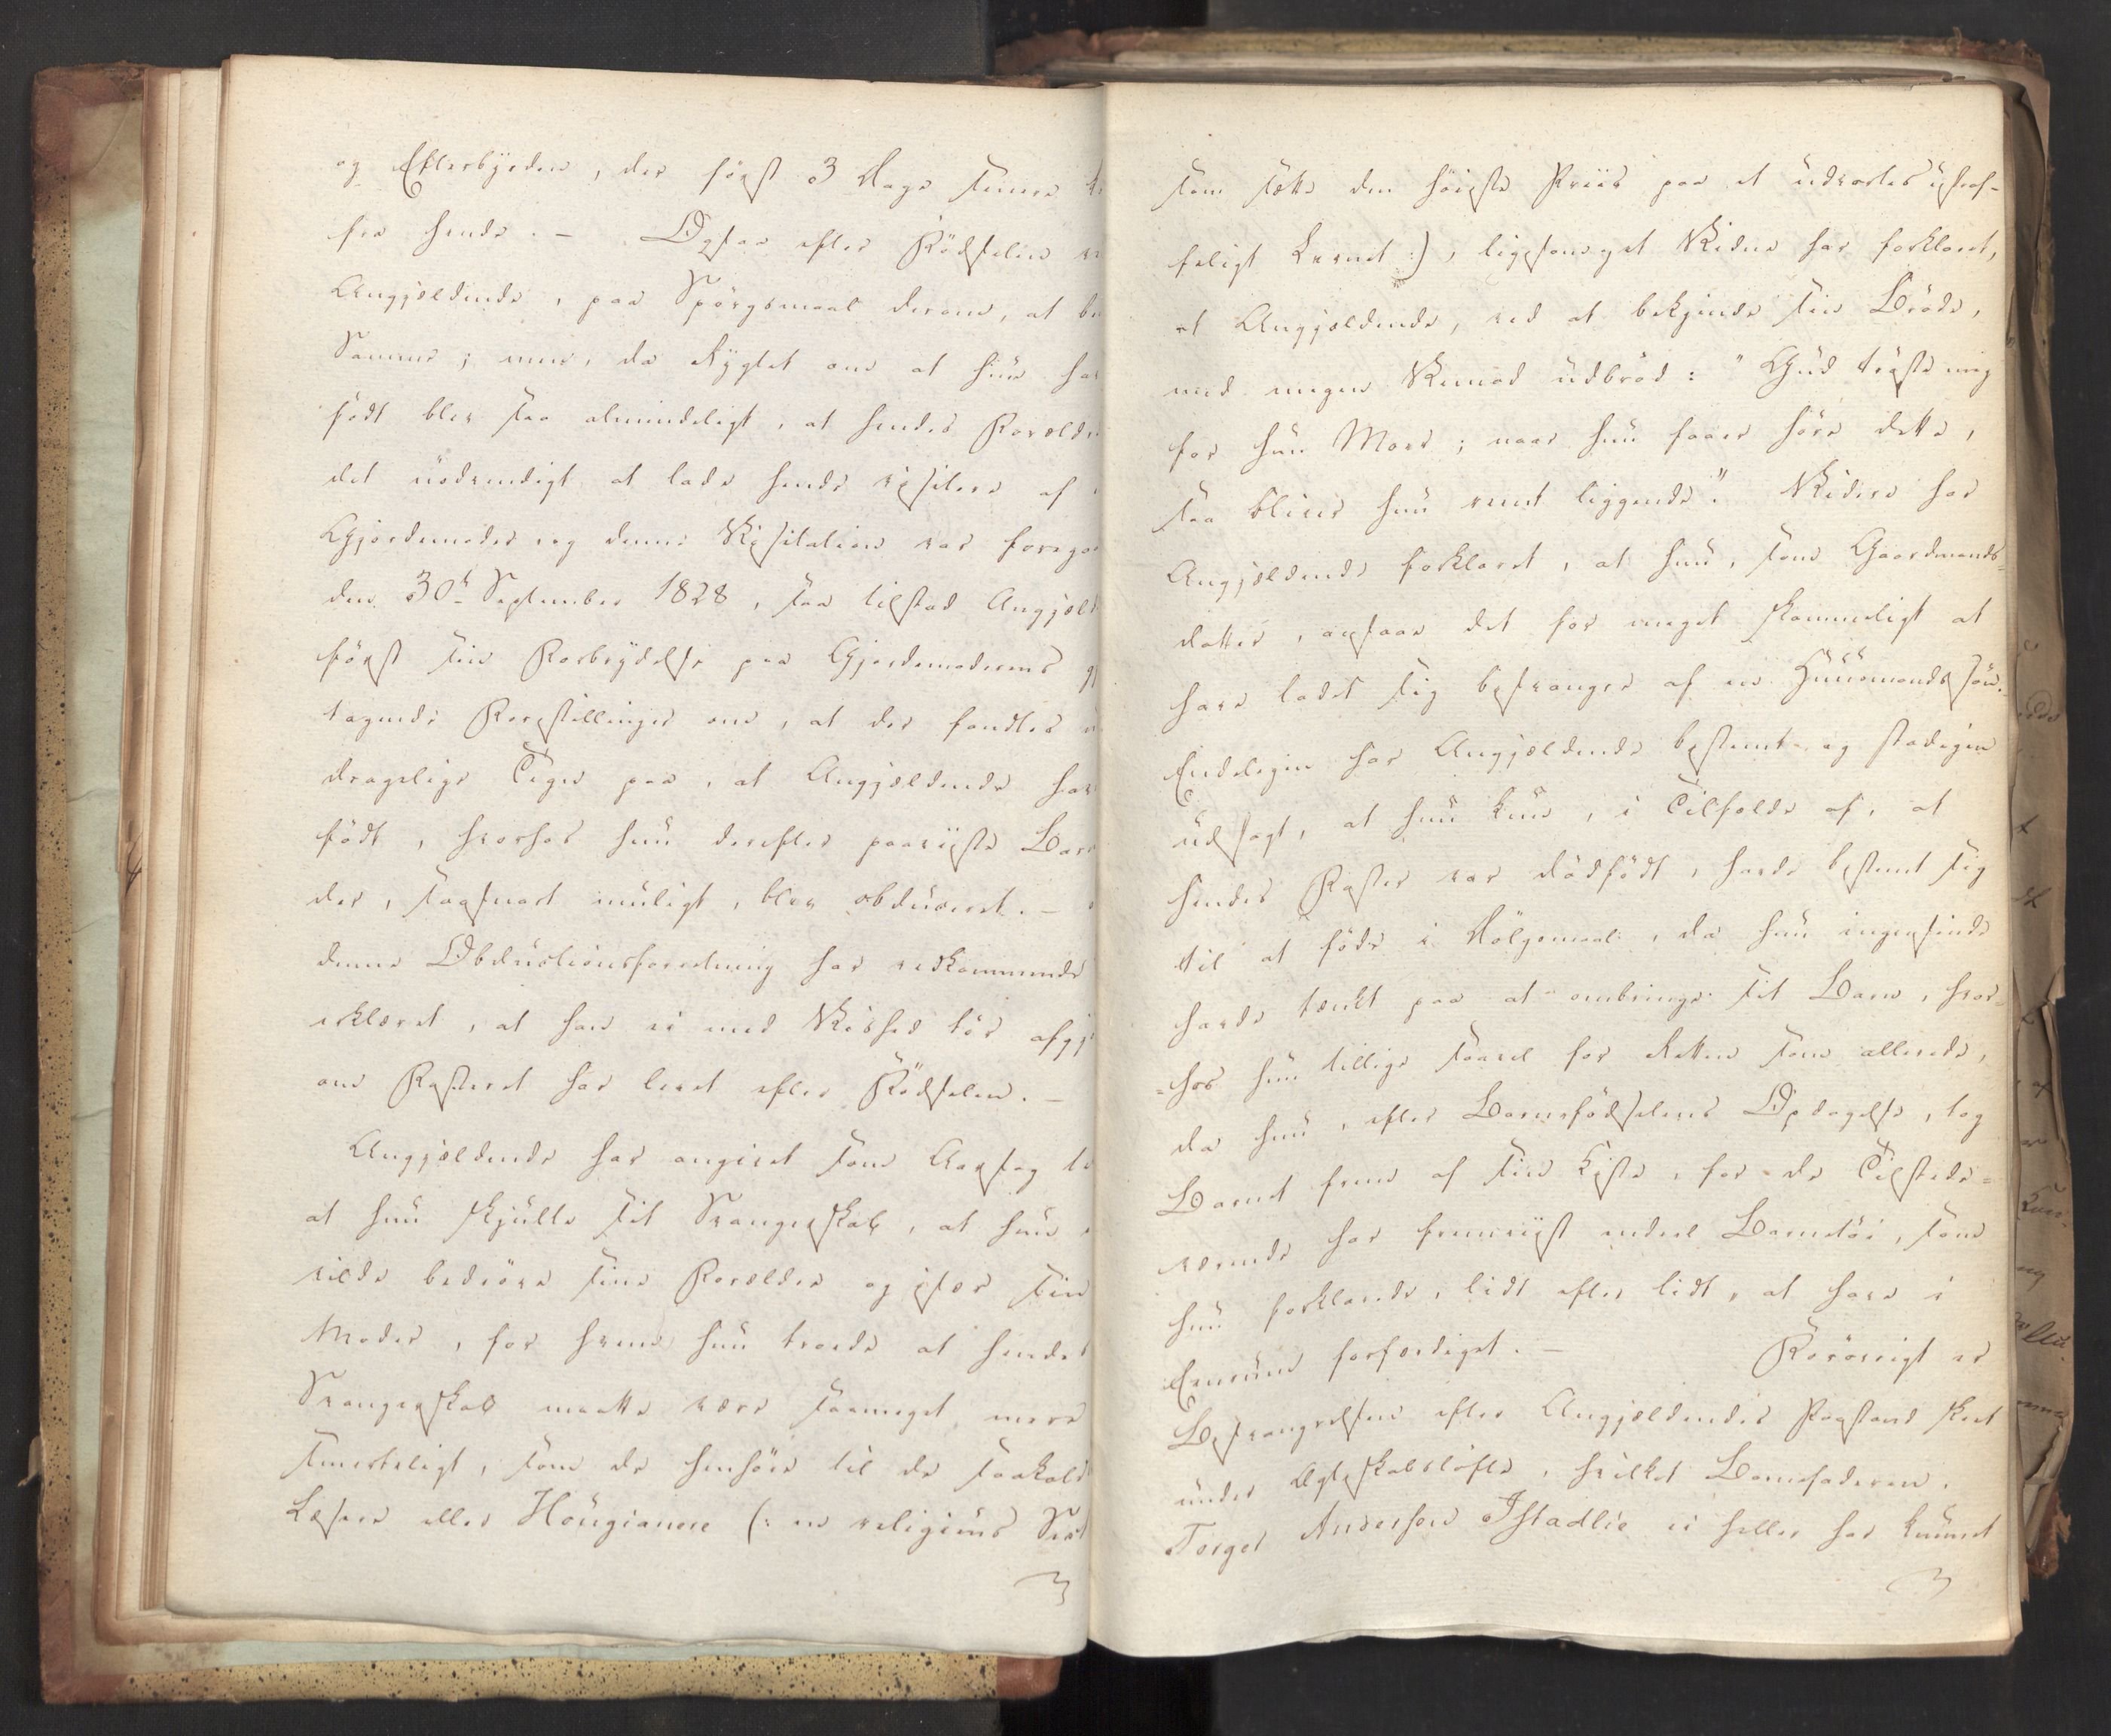 og Efterbyrden, der först 3 Dage senere
fra hende. – Ogsaa efter Födselen
Angjældende, paa Spörgsmaal derom, at be
Samme; men, da Rygtet om at hun hav
födt blev saa almindeligt, at hendes Forældre
det nödvendigt at lade hende visitere af
Gjordemoder og denne Visitation var foregaa
den 30te September 1828, saa tilstod Angjæld
först sin Forbrydelse paa Gjordemoderens
tagende Forestillinger om, at der fandtes
dragelige Tegn paa, at Angjældende hav
födt, hvorhos hun derefter paaviiste Barn
der, saasnart muligt, blev obduceret. –
denne Obductionsforretning har vedkommende
erklæret, at han ei med Vished tör afgj
om Fosteret har levet efter Födselen. –
Angjældende har angivet som Aarsag ti
at hun skjulte sit Svangerskab, at hun
vilde bedröve sine Forældre og især sin
Moder, for hvem hun troede at hendes
Svangerskab maatte være saameget mere
smerteligt, som de henhöre til de saakald
Læsere eller Höugianere (: en religieus Sect
som sætte den höieste Priis paa et udvortes ustraf-
feligt Levnet :), ligesom et Vidne har forklaret,
at Angjældende, ved at bekjende sin Bröde,
med megen Vemod udbröd: "Gud tröste mig
for hun Moer; naar hun faaer höre dette,
saa bliver hun reent liggende". Videre har
Angjældende forklaret, at hun, som Gaardmands-
datter, ansaae det for meget skammeligt at
have ladet sig besvangre af en Huusmandssön.
Endeligen har Angjældende bestemt og stadigen
udsagt, at hun kun, i Tilfælde af, at
hendes Foster var dödfödt, havde bestemt sig
til at föde i Dölgsmaal, da hun ingensinde
havde tænkt paa at ombringe sit Barn, hvor-
-hos hun tillige saavel for Retten som allerede,
da hun, efter Barnefödselens Opdagelse, tog
Barnet frem af sin Kiste, for de Tilstede-
værende har fremviist endeel Barnetöi, som
hun forklarede, lidt efter lidt, at have i
Eenrum forfærdiget. – Forövrigt er
Besvangrelsen efter Angjældendes Paastand skeet
under Ægteskabslöfte, hvilket Barnefaderen,
Torger Andersen Ihladlie ei heller har kunnet